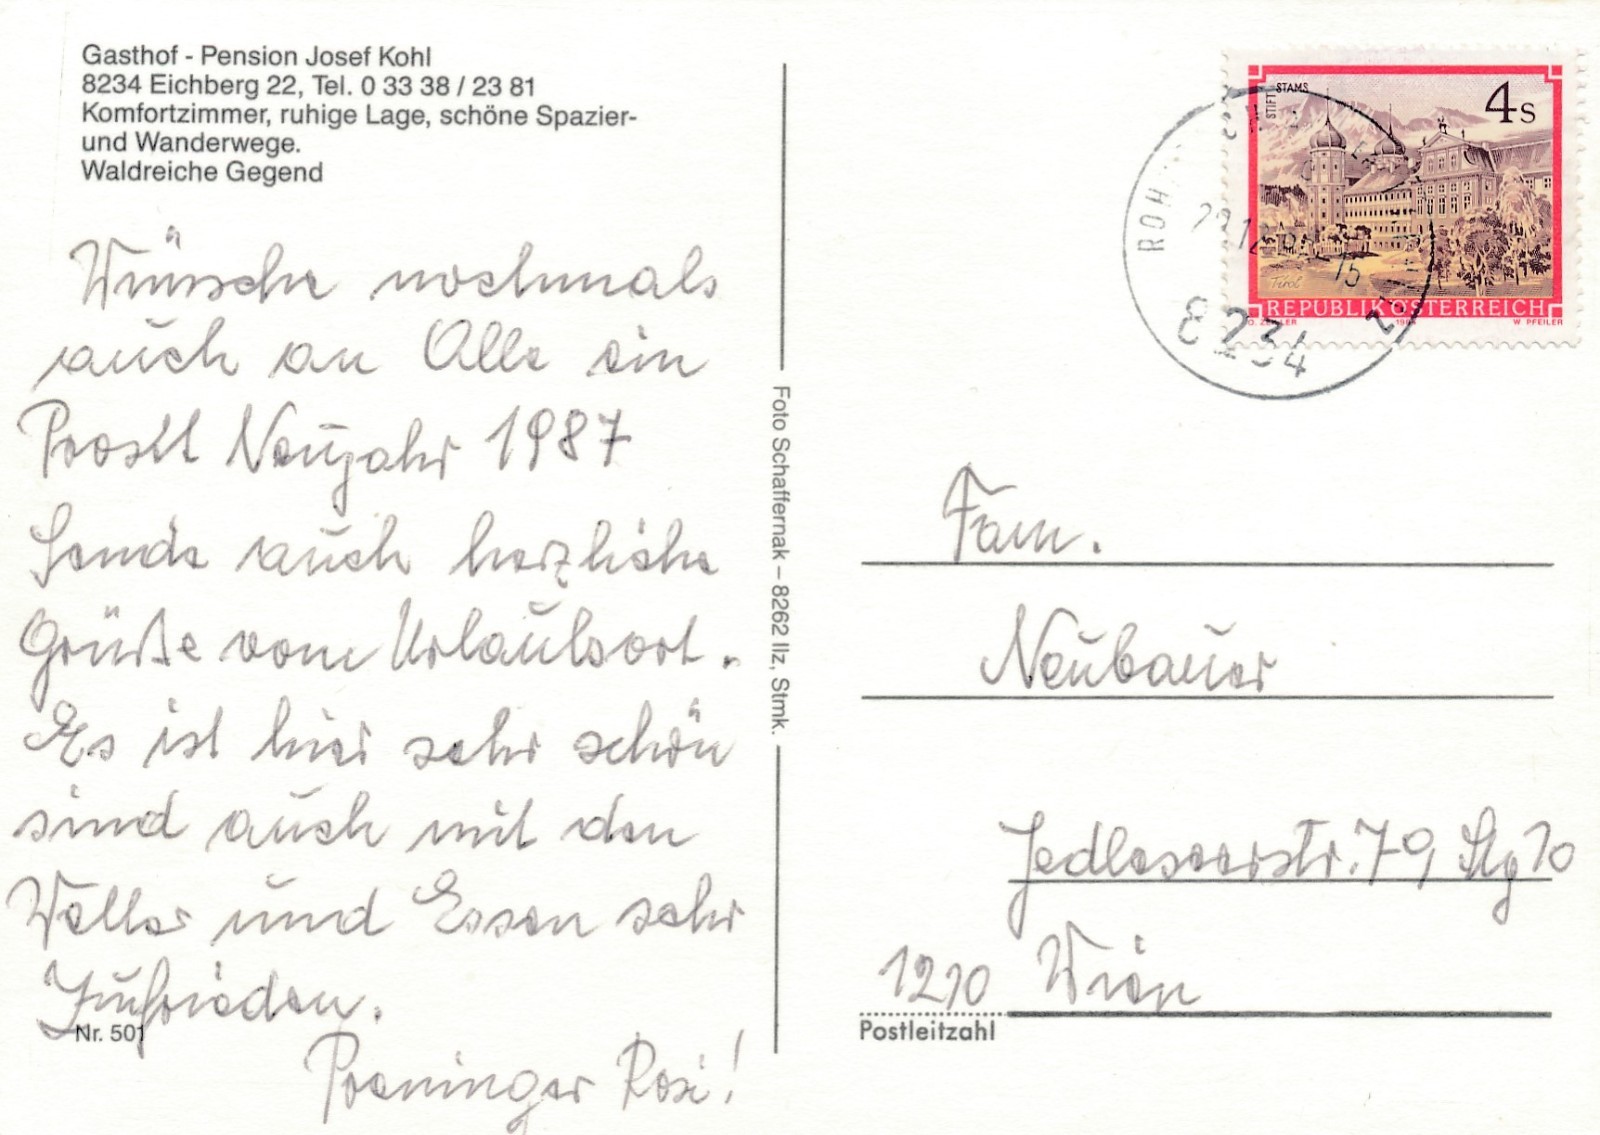 Gasthof - Pension Josef Kohl
8234 Eichberg 22, Tel. 0 33 38 / 23 81
Komfortzimmer, ruhige Lage, schöne Spazier-
und Wanderwege.
Waldreiche Gegend
Wünsche nochmals
auch an Alle ein
Prostt Neujahr 1987
Sende auch herzliche
Grüße vom Urlaubsort.
Es ist hier sehr schön
sind auch mit den
Wetter und Essen sehr
Zufrieden.
Preninger Rosi!
Nr. 501
Foto Schaffernak – 8262 Ilz, Stmk.
STIFT STAMS
4 S
Tirol
REPUBLIK ÖSTERREICH
W. PFEILER
ROH
8234
Fam.
Neubauer
Jedleseerstr. 79 Stg 10
1210 Wien
Postleitzahl